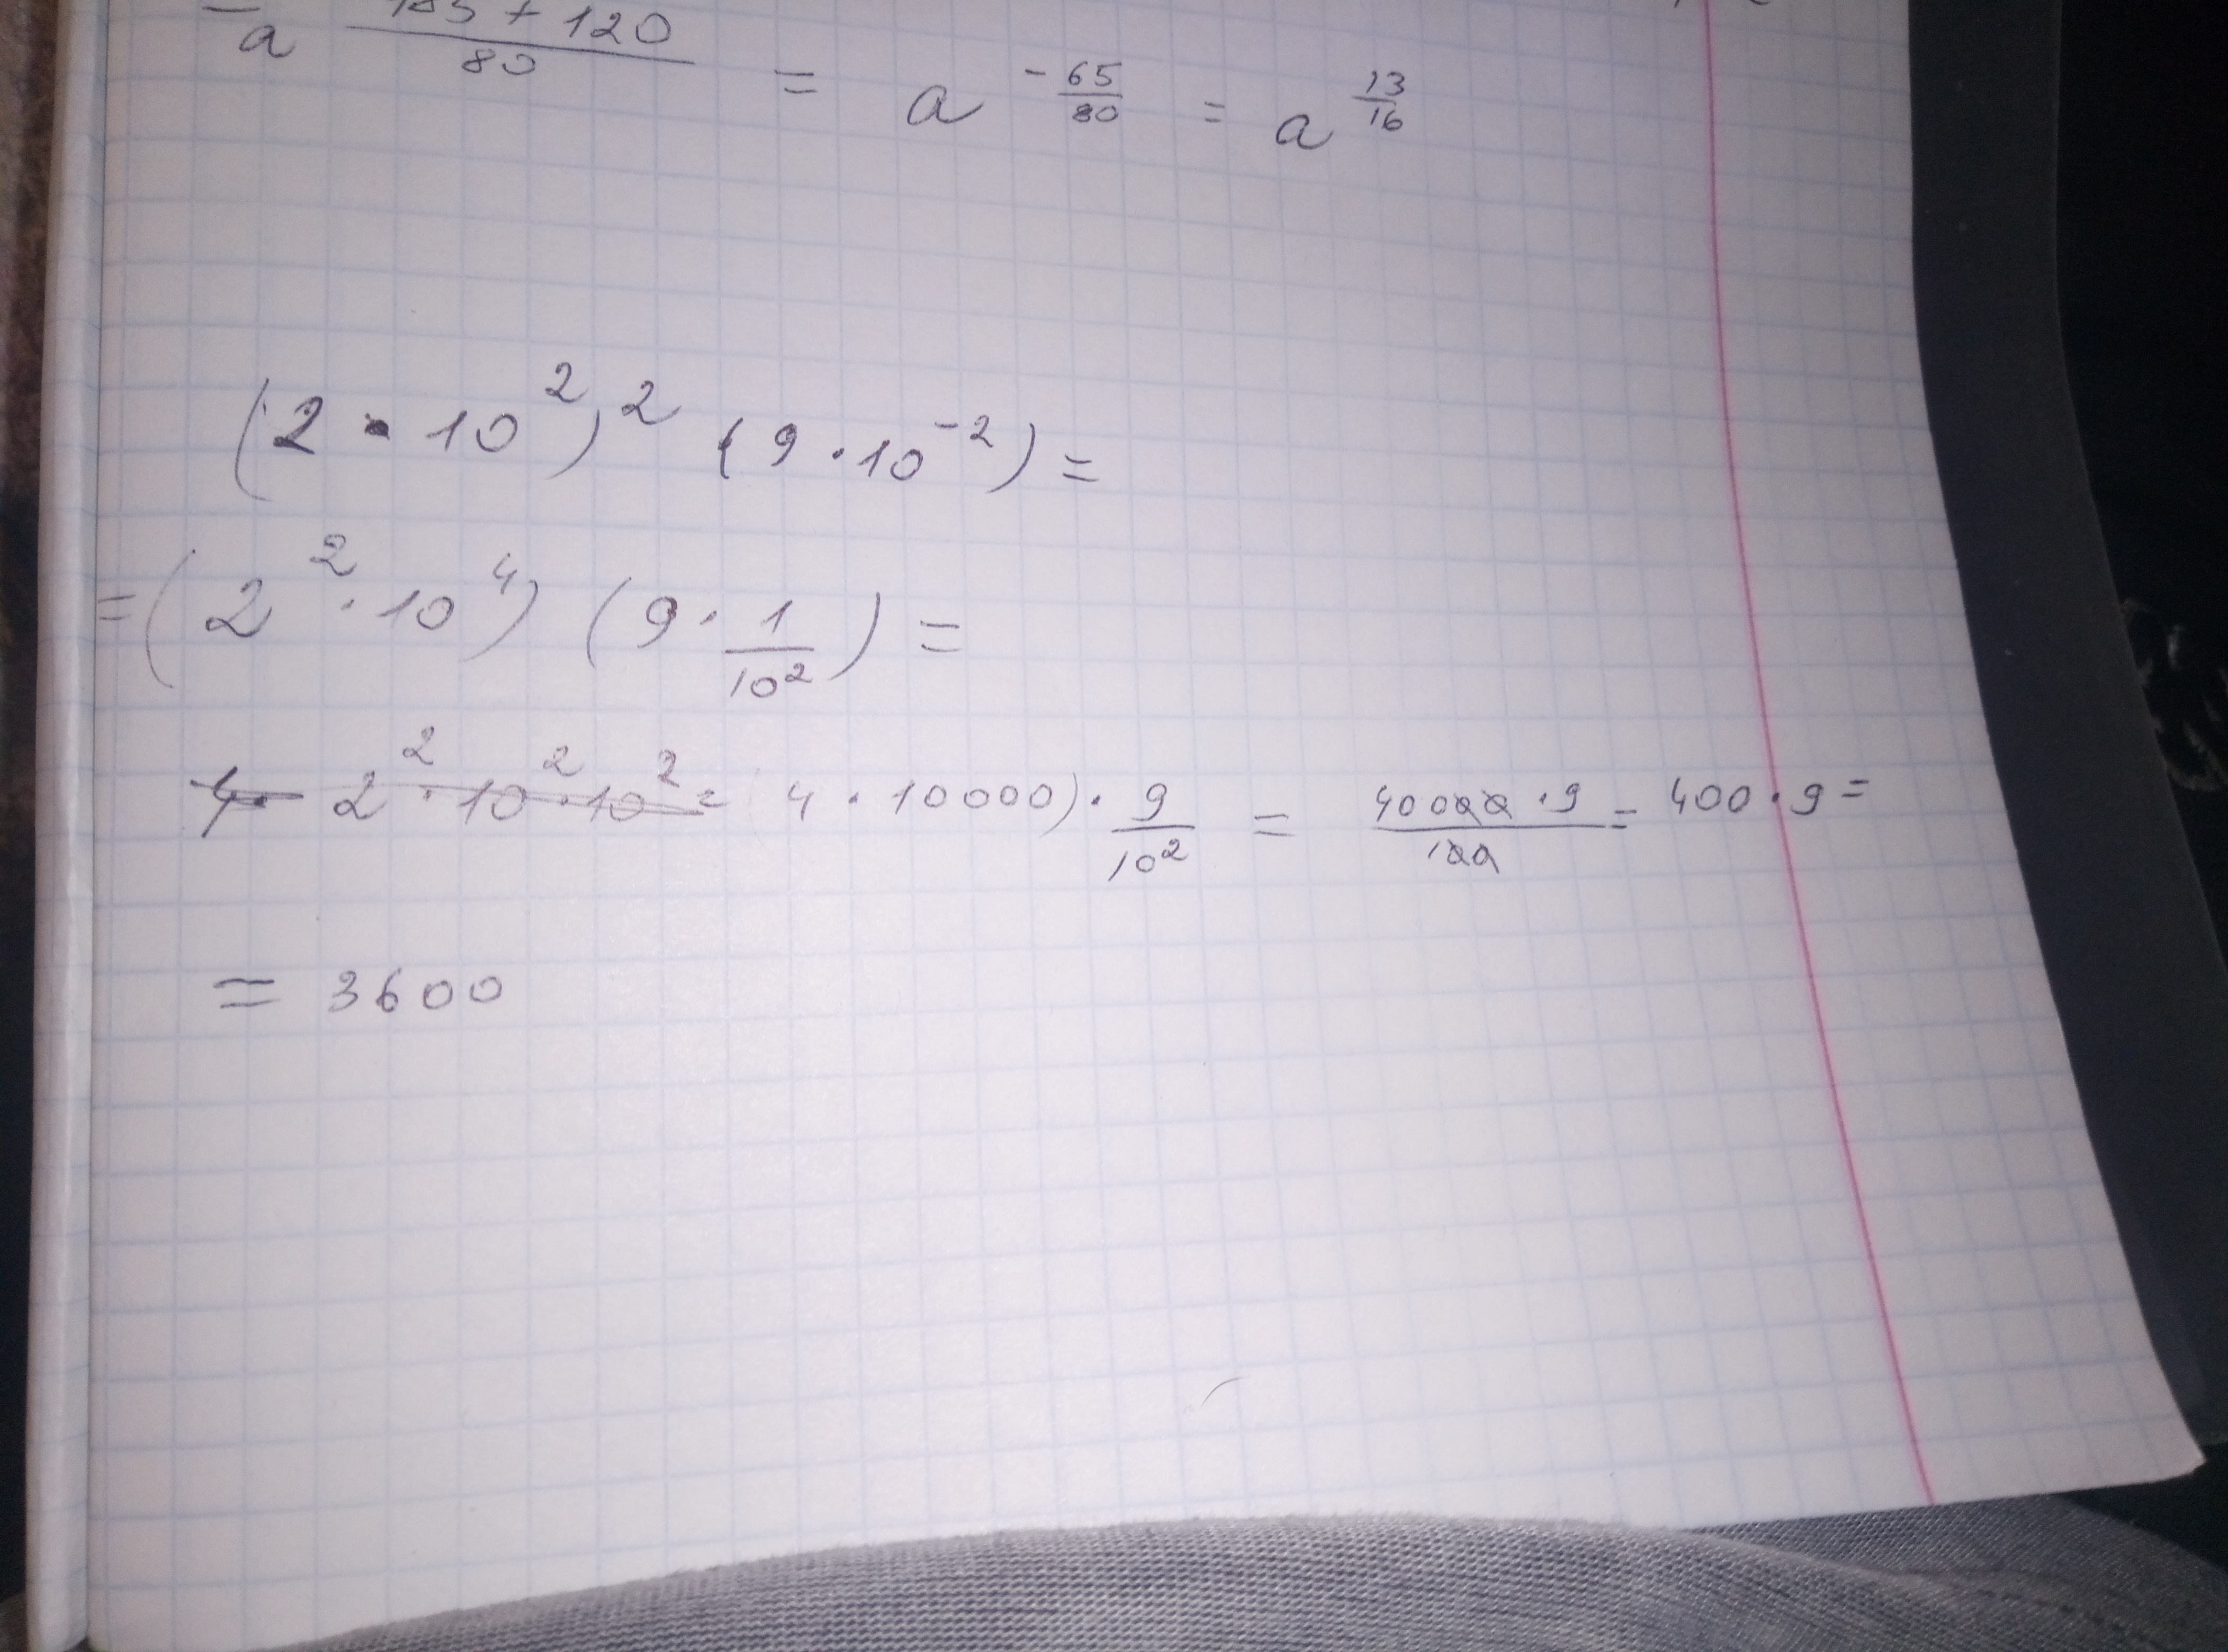 a^{\frac{185 + 120}{80}} = a^{-\frac{65}{80}} = a^{\frac{13}{16}}
(2 · 10^2)^2 (9 · 10^{-2}) =
= (2^2 · 10^4) (9 · \frac{1}{10^2}) =
(4 · 10000) · \frac{9}{10^2} = \frac{40000 · 9}{100} = 400 · 9 =
= 3600